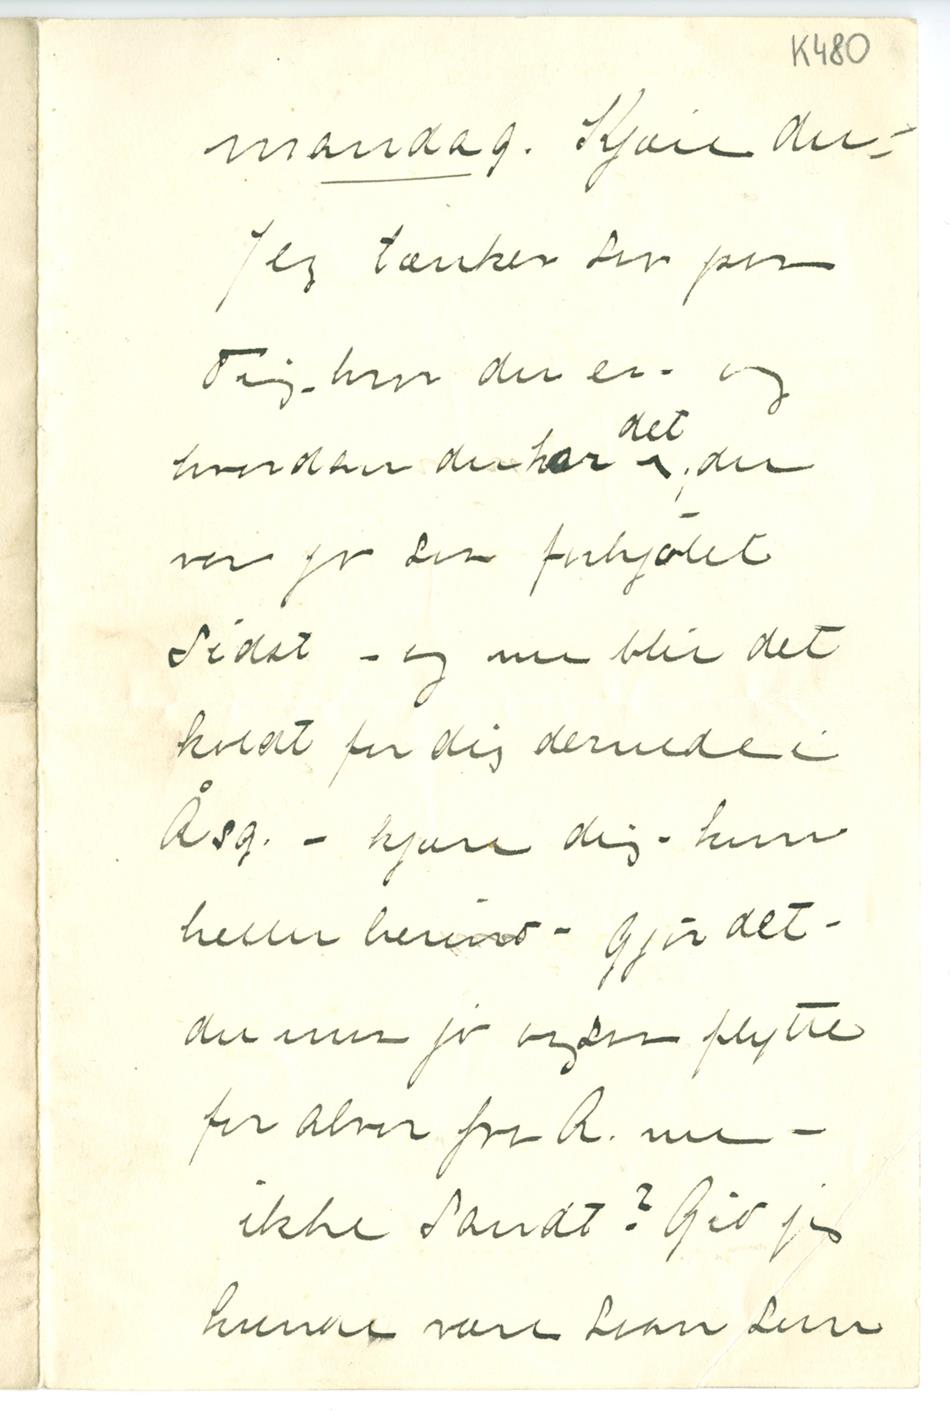 K480
mandag. Kjære du –
Jeg tænker saa paa
Dig – hvor du er – og
hvordan du har det, du
var jo saa forkjølet
Sidst – og nu blir det
koldt for dig dernede i
Åsg. – kjære dig – kom
heller herind – Gjør det –
du maa jo ogsaa flytte
for alvor fra A. nu –
ikke Sandt? Gid jeg
kunde være saan som